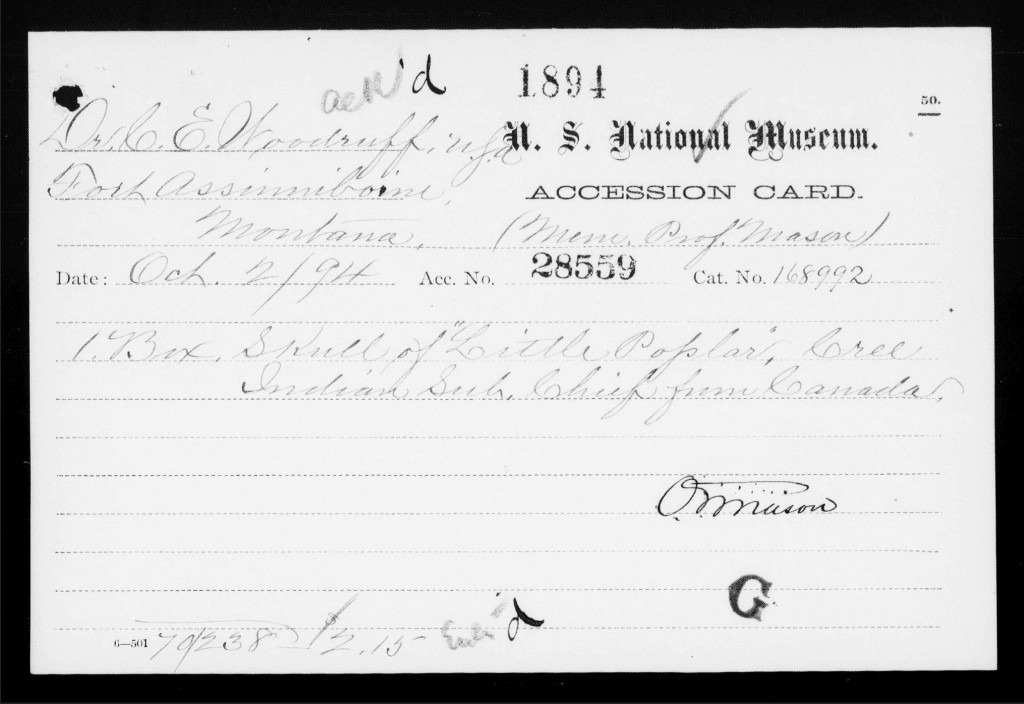 ack'd 1894
50.
Dr. C. E. Woodruff, U.S.A. U. S. National Museum.
Fort Assinniboine, ACCESSION CARD.
Montana. (Mem. Prof. Mason)
Date: Oct. 2/94 Acc. No. 28559 Cat. No. 168992
1. Box. Skull of "Little Poplar", Cree
Indian Sub. Chief from Canada.
O. T. Mason
G
6—501 12.15 Ent'd